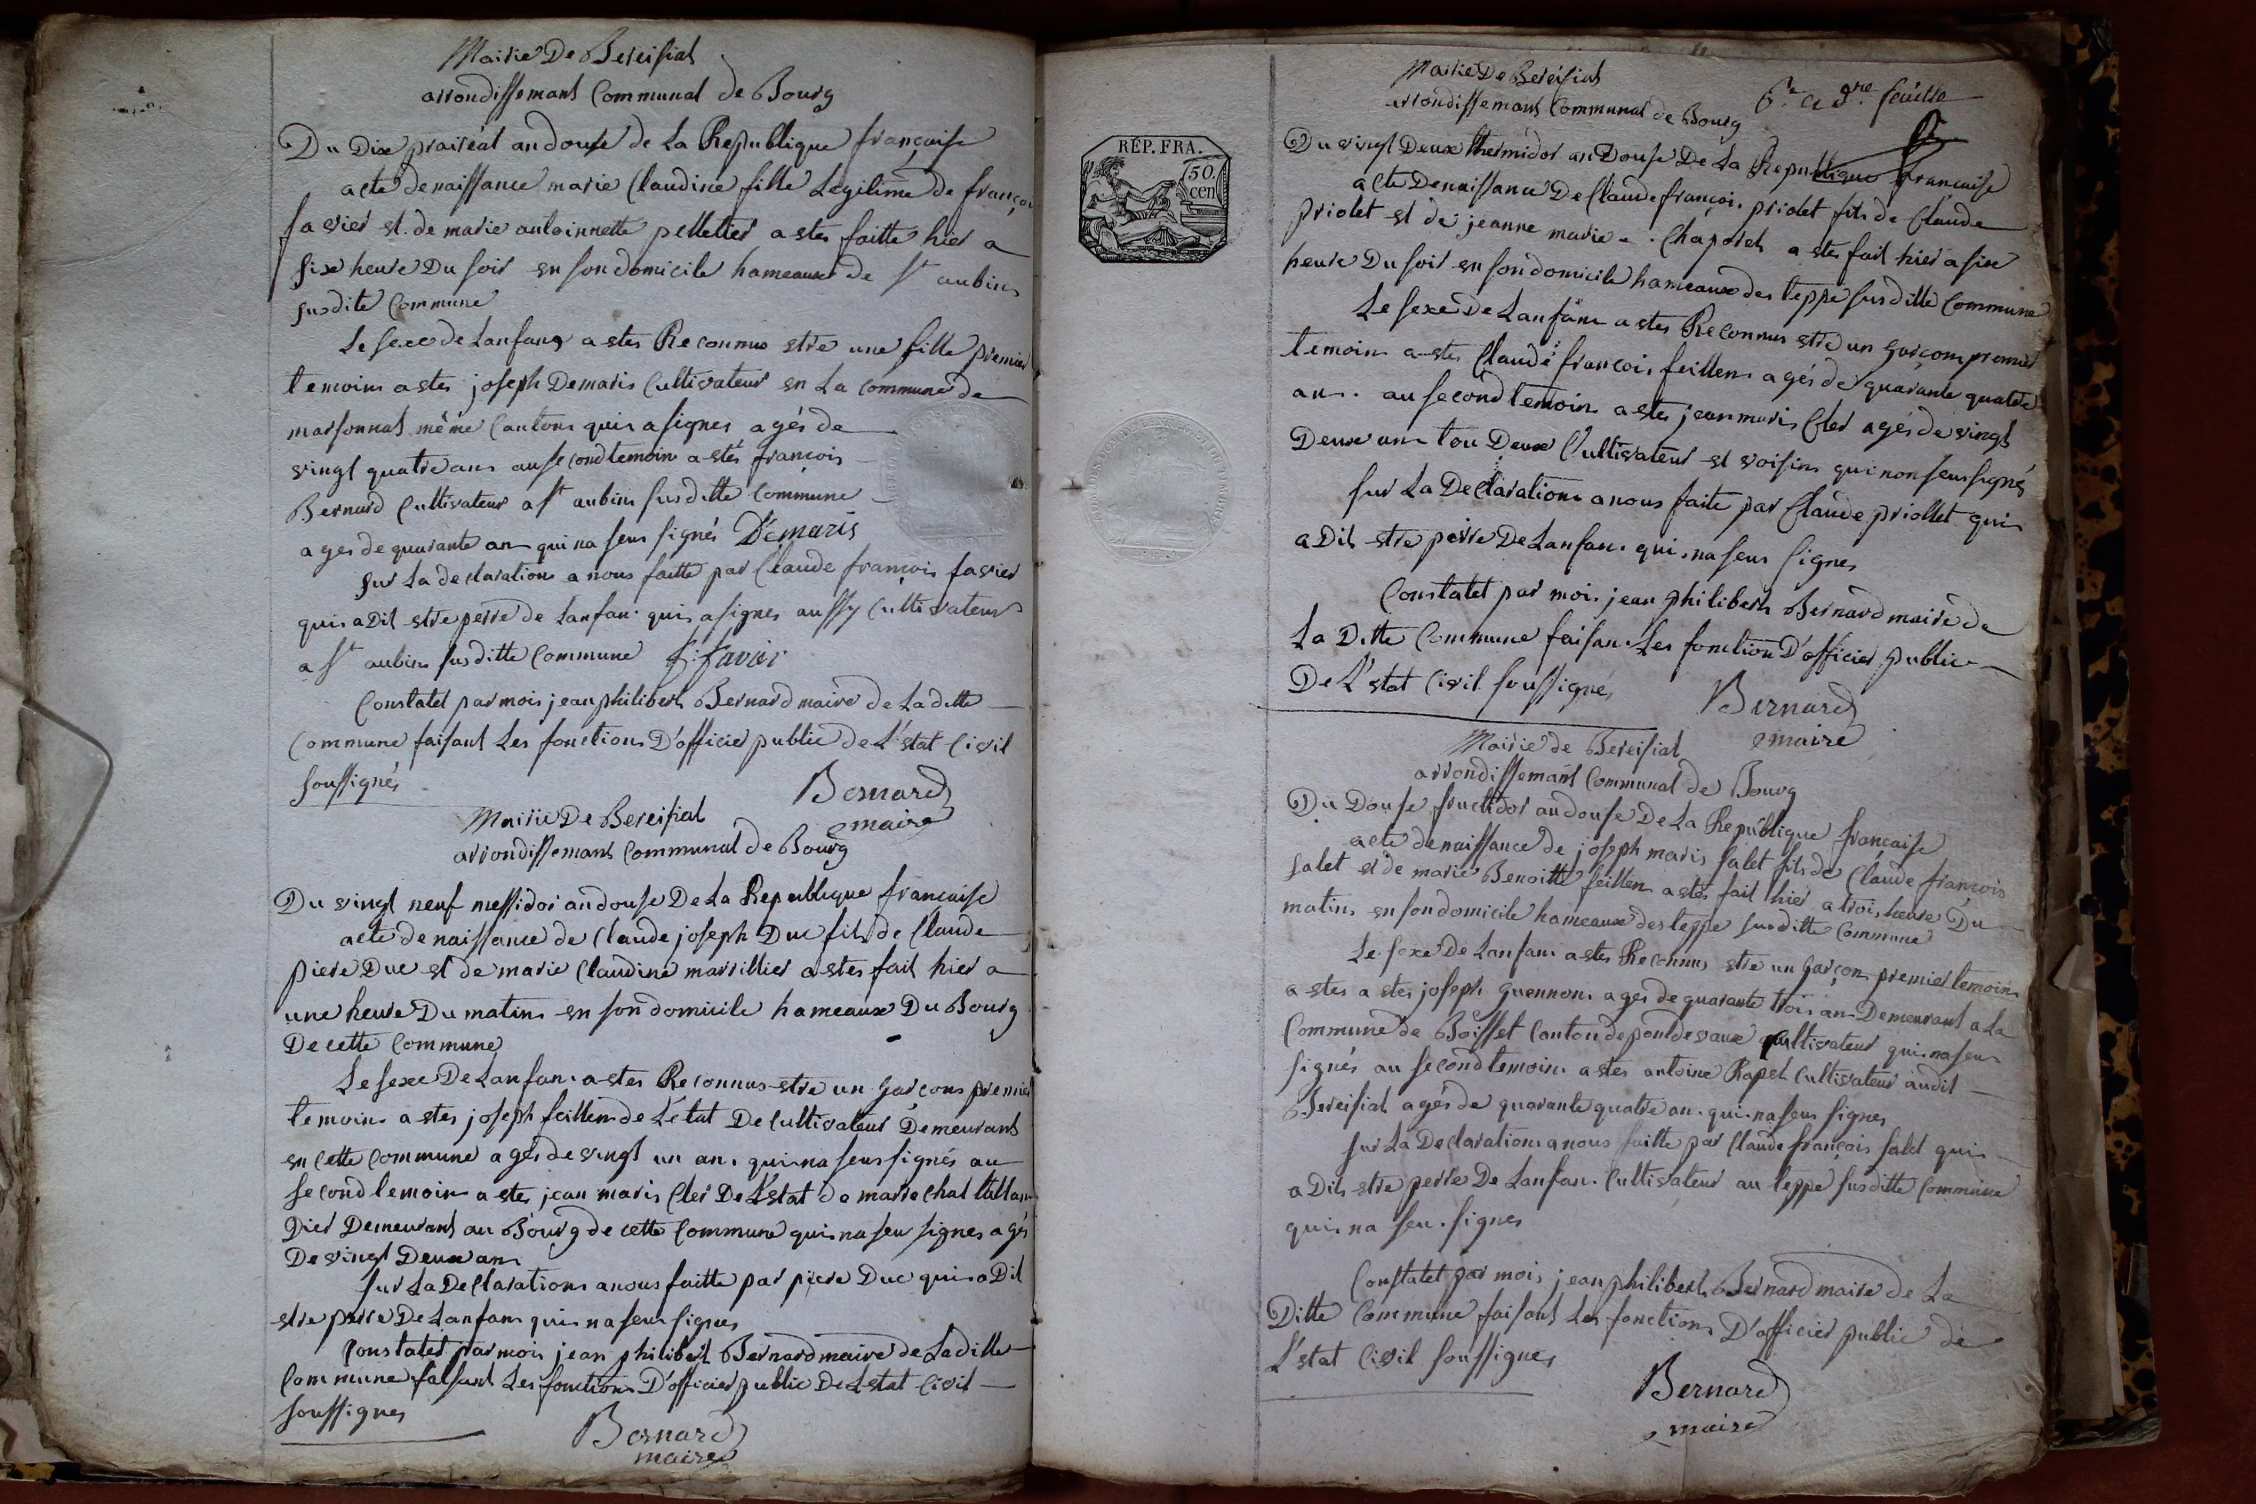 Mairie De Bereisiat
arrondissemant Communal de Bourg
Du Dix prairéal an douse de La Republique française
acte denaissance marie Claudine fille Legitime de françoi
favier et de marie antoinnette pelletier a etes faitte hier a
six heure Du soir en son domicile hameaux de St aubins
susdite Commune
Le sexe de Lanfang a etes Reconnus etre une fille premier
temoins a etes joseph Demaris Cultivateur en La commune de
marsonnat même Cantons quis a signes agés de
vingt quatre ans au second temoins a etés françois
Bernard Cultivateur a St aubins susditte Commune
ages de quarante an qui na seus signés Démaris
sur La declarations a nous faitte par Claude françois favier
quis a Dit etre perre de Lanfan quis a signes aussy Cultivateur
a St aubins susditte Commune f: favier
Constatet par mois jean philibert Bernard maire de Laditte
Commune faisant Les fonctions D'officier public de L'état Civil
soussignés
Bernard
maire
Mairie De Bereisiat
arrondissemant Communal de Bourg
Du vingt neuf messidor an douse De La Republique francaise
acte de naissance de Claude joseph Duc fils de Claude
piere Duc et de marie Claudine marillier a etes fait hier a
une heure Du matins en son domicile hameaux Du Bourg
De cette Commune
Le sexe De Lanfan a etes Reconnus etre un Garcons premier
temoins a etes joseph feillens de L'état De Cultivateur Demeurant
en Cette Commune agés de vingt un an quis na seus signés au
second temoins a etes jean maris Cler De L'état de marrechal tallan
Dier Demeurant au Bourg de cette Commune quis na seu signes agés
De vingt Deux ans
sur La Declarations a nous faitte par piere Duc quis a Dit
etre perre De Lanfans quis na seus signes
Constatet par mois jean philibert Bernard maire de Laditte
Commune faisant Les fonctions D'officier public De L'etat Civil
soussignes
Bernard
maire
Mairie De Bereisiat
arrondissemant Communal de Bourg
6e et dre feuille
RÉP. FRA.
50.
cen
Du vingt Deux thermidor an Douse De La Republique francaise
acte Denaissance De Claude françois priolet fils de Claude
priolet et de jeanne marie Chapotet a etes fait hier a six
heure Du soir en son domicile hameaux des teppe susditte Commune
Le sexe De Lanfans a etes Reconnus etre un Garcons premier
temoins a etes Claude françois feillens agés de quarante quatre
an au second temoins a etes jean maris Cler agés de vingt
Deux ans tou Deux Cultivateur et voisins qui non seus signés
sur La Declarations a nous faite par Claude priollet quis
a Dit etre perre De Lanfans quis na seus signes
Constatet par mois jean philibert Bernard maire de
La Ditte Commune faisan Les fonction D'officier public
De L'état Civil soussignés
Bernard
maire
Mairie de Bereisiat
arrondissemant Communal de Bourg
Du Douse fructidor an douse De La Republique francaise
acte denaissance de joseph maris salet fils de Claude françois
salet et de marie Benoitte feillens a etés fait hier a trois heure Du
matins en son domicile hameaux des teppe susditte Commune
Le sexe De Lanfans a etes Reconnus etre un Garçon premier temoins
a etes a etes joseph Guennon ages de quarante trois an Demeurant a La
Commune de Boisset Canton de pontdevaux Cultivateur quis na seu
signés au second temoins a etes antoine Rapet Cultivateur audit
Bereisiat agés de quarante quatre an quis na seus signes
sur La Declarations a nous faitte par Claude françois salet quis
a Dits etre perre De Lanfan Cultivateur au teppe susditte Commune
quis na seu signes
Constatet par mois jean philibert Bernard maire de La
Ditte Commune faisant Les fonctions D'officier public de
L'état Civil soussignes
Bernard
maire